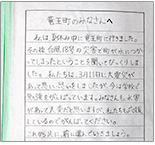 竜王町のみなさんへ
私は、夏休み中に竜王町に行きました。
その後、台風18号の災害で町が水につかっ
てしまったということを聞いてびっくりしまし
た。私たちは、3月11日に大震災が
あって悲しい思いをしましたが、今は学校で
勉強をがんばっています。みなさんも、水害
があって大変だと思いますが、私たちも応援し
ているのでがんばってください。
これからも、前に進んでいきましょう。